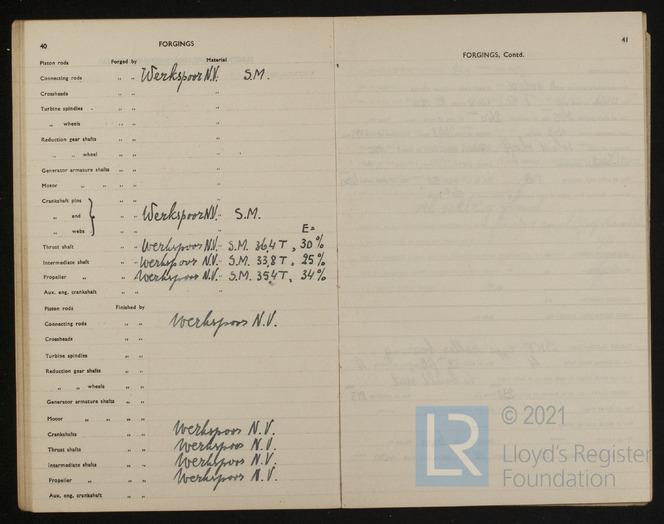 40
FORGINGS
Piston rods Forged by Material
Connecting rods " " Werkspoor N.V. " S.M.
Crossheads " " "
Turbine spindles " " "
" wheels " " "
Reduction gear shafts " " "
" " wheel " " "
Generator armature shafts " " "
Motor " " " " "
Crankshaft pins
" and } " " Werkspoor N.V. " S.M.
" webs E=
Thrust shaft " " Werkspoor N.V. " S.M. 36,4 T, 30%
Intermediate shaft " " Werkspoor N.V. " S.M. 33,8 T, 25%
Propeller " " " Werkspoor N.V. " S.M. 35,4 T, 34%
Aux. eng. crankshaft " " "
Piston rods Finished by
Connecting rods " " Werkspoor N.V.
Crossheads " "
Turbine spindles " "
Reduction gear shafts " "
" " wheels " "
Generator armature shafts " "
Motor " " " "
Crankshafts " " Werkspoor N.V.
Thrust shafts " " Werkspoor N.V.
Intermediate shafts " " Werkspoor N.V.
Propeller " " " Werkspoor N.V.
Aux. eng. crankshaft " "
41
FORGINGS, Contd.
LR
© 2021
Lloyd's Register
Foundation